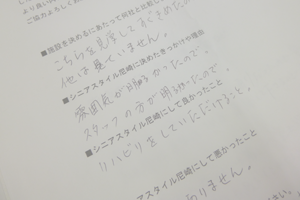 ご協力よろしくお
■施設を決めるにあたって何社と比較し
こちらを見学してすぐきめたので
他は見ていません。
■シニアスタイル尼崎に決めたきっかけや理由
雰囲気が明るかったので、
スタッフの方が明るかったので。
■シニアスタイル尼崎にして良かったこと
リハビリをしていただけること。
アスタイル尼崎にして悪かったこと
りません。
ださい。